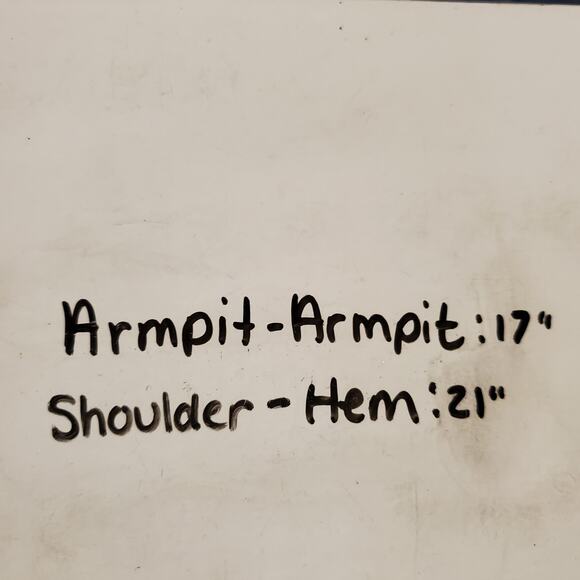 Armpit-Armpit:17"
Shoulder-Hem:21"